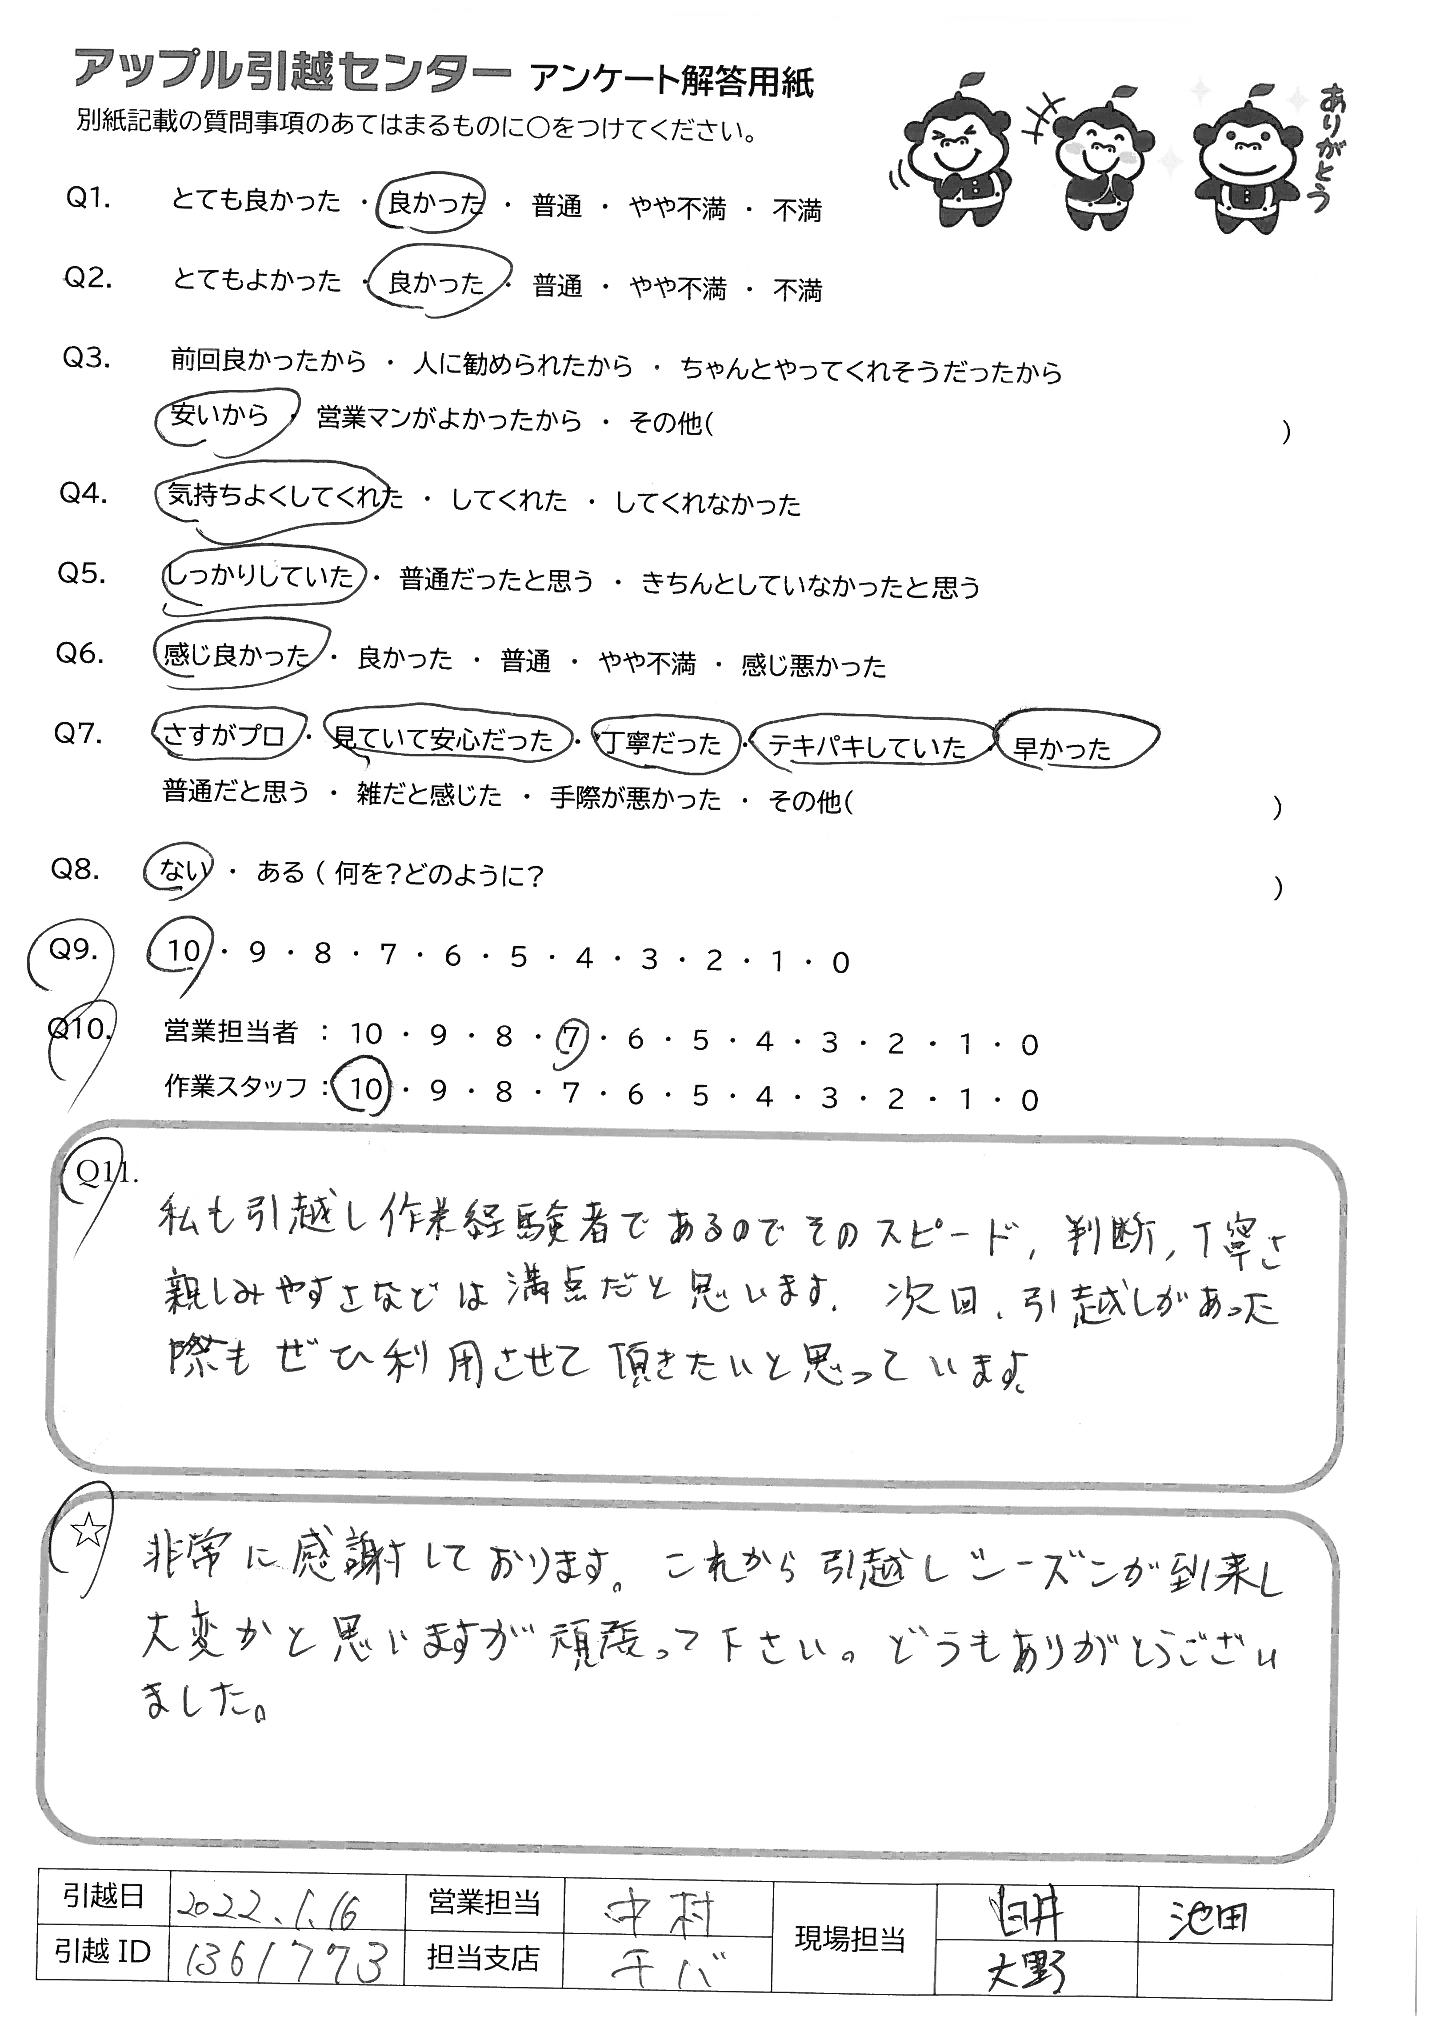 アップル引越センター アンケート解答用紙
別紙記載の質問事項のあてはまるものに○をつけてください。
ありがとう
Q1. とても良かった ・ 良かった ・ 普通 ・ やや不満 ・ 不満
Q2. とてもよかった ・ 良かった ・ 普通 ・ やや不満 ・ 不満
Q3. 前回良かったから ・ 人に勧められたから ・ ちゃんとやってくれそうだったから
安いから ・ 営業マンがよかったから ・ その他( )
Q4. 気持ちよくしてくれた ・ してくれた ・ してくれなかった
Q5. しっかりしていた ・ 普通だったと思う ・ きちんとしていなかったと思う
Q6. 感じ良かった ・ 良かった ・ 普通 ・ やや不満 ・ 感じ悪かった
Q7. さすがプロ ・ 見ていて安心だった ・ 丁寧だった ・ テキパキしていた ・ 早かった
普通だと思う ・ 雑だと感じた ・ 手際が悪かった ・ その他( )
Q8. ない ・ ある ( 何を?どのように? )
Q9. 10 ・ 9 ・ 8 ・ 7 ・ 6 ・ 5 ・ 4 ・ 3 ・ 2 ・ 1 ・ 0
Q10. 営業担当者 : 10 ・ 9 ・ 8 ・ 7 ・ 6 ・ 5 ・ 4 ・ 3 ・ 2 ・ 1 ・ 0
作業スタッフ : 10 ・ 9 ・ 8 ・ 7 ・ 6 ・ 5 ・ 4 ・ 3 ・ 2 ・ 1 ・ 0
Q11.
私も引越し作業経験者であるのでそのスピード, 判断, 丁寧さ
親しみやすさなどは満点だと思います. 次回, 引越しがあった
際もぜひ利用させて頂きたいと思っています.
☆
非常に感謝しております。これから引越しシーズンが到来し
大変かと思いますが頑張って下さい。どうもありがとうござい
ました。
引越日 2022.1.16 営業担当 中村 現場担当 臼井 池田
引越 ID 1361773 担当支店 千バ 大野